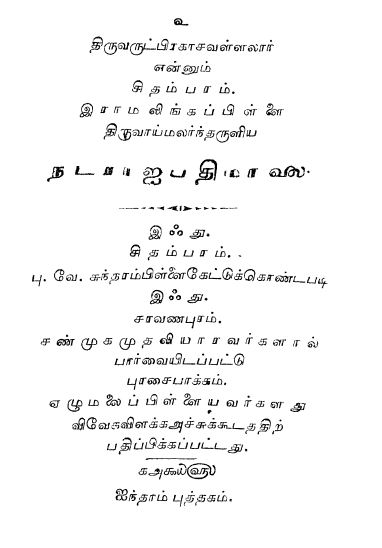 உ
திருவருட்பிரகாசவள்ளலார்
என்னும்
சிதம்பரம்.
இராமலிங்கப்பிள்ளை
திருவாய்மலர்ந்தருளிய
நடராஜபதிமாலை.
இஃது.
சிதம்பரம்.
பு. வே. சுந்தரம்பிள்ளைகேட்டுக்கொண்டபடி
இஃது.
சரவணபுரம்.
சண்முகமுதலியாரவர்களால்
பார்வையிடப்பட்டு
புரசைபாக்கம்.
ஏழுமலைப்பிள்ளையவர்களது
விவேகவிளக்கஅச்சுக்கூடத்திற்
பதிப்பிக்கப்பட்டது.
ஐந்தாம் புத்தகம்.